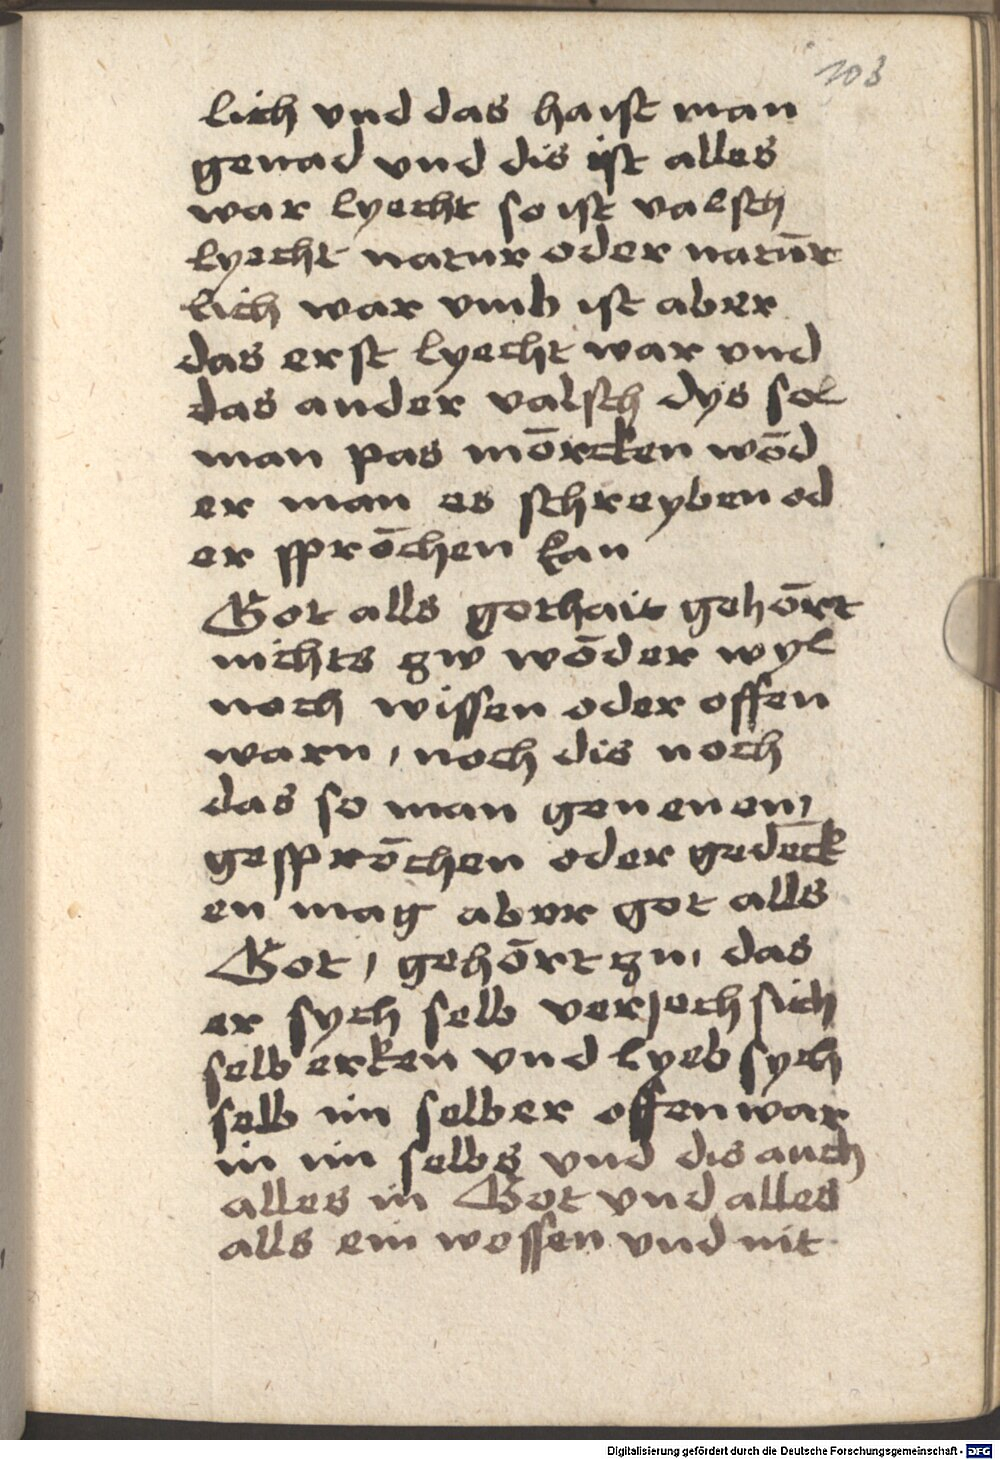 103
lich vnd das haist man
genad vnd dis ist alles
war lyecht so ist valsch
lyecht natur oder natūr
lich war vmb ist aber
das erst lyecht war vnd
das ander valsch dys sol
man pas mōrcken wōd
er man es schreyben od
er sprōchen kan
Got alls gothait gehōrt
nichts zw wōder wyl
noch wissen oder offen
warn, noch dis noch
das so man genenen,
gesprōchen oder gedēck
en mag aber got alls
Got, gehōrt zu, das
er sych selb verjech sich
selb erken vnd lyeb sych
selb im selber offenwar
in im selbs vnd dis auch
alles in Got vnd alles
alls ein wessen vnd nit
Digitalisierung gefördert durch die Deutsche Forschungsgemeinschaft - DFG